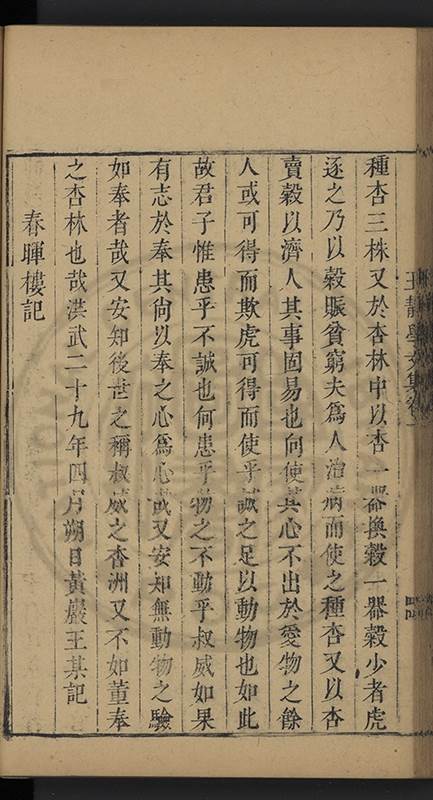 種杏三株又於杏林中以杏一器換穀一器穀少者虎
逐之乃以穀賑貧窮夫爲人治病而使之種杏又以杏
賣穀以濟人其事固易也向使其心不出於愛物之餘
人或可得而欺虎可得而使乎誠之足以動物也如此
故君子惟患乎不誠也何患乎物之不動乎叔威如果
有志於奉其尙以奉之心爲心哉又安知無動物之驗
如奉者哉又安知後世之稱叔威之杏洲又不如董奉
之杏林也哉洪武二十九年四月朔日黃巖王某記
春暉樓記
王靜學文集卷